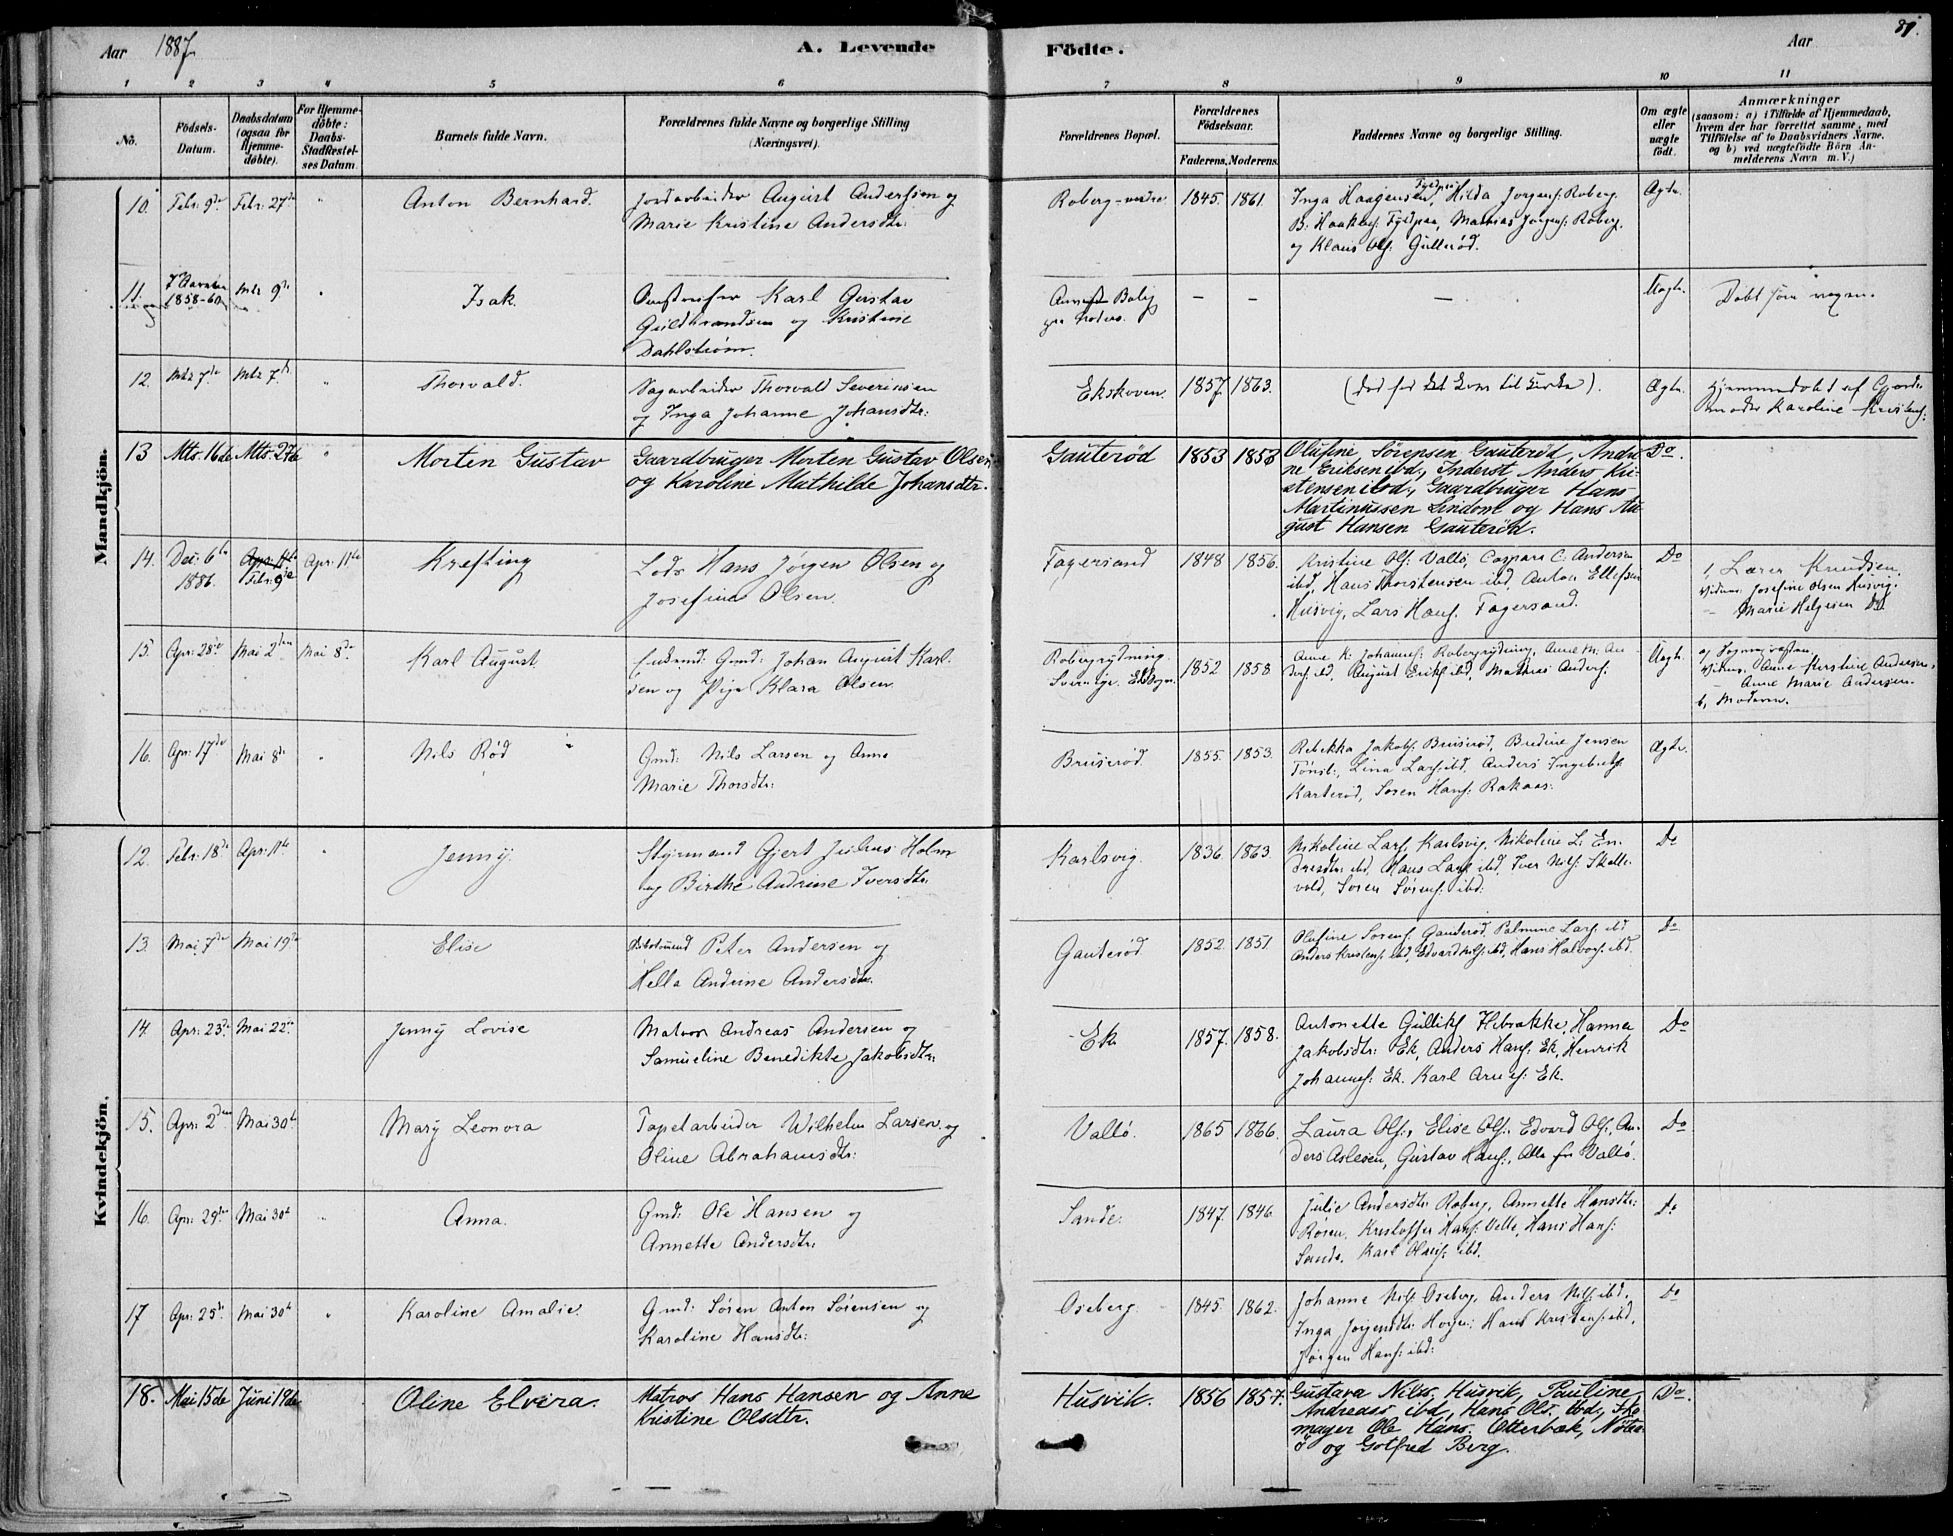 Aar 1887. A. Levende Födte. Aar 89.
1 2 3 4 5 6 7 8 9 10 11
No. Födsels-Datum. Daabsdatum (ogsaa for Hjemme-döbte). For Hjemme-döbte: Daabs-Stadfæstel-ses Datum. Barnets fulde Navn. Forældrenes fulde Navne og borgerlige Stilling (Næringsvei). Forældrenes Bopæl. Forældrenes Födselsaar. Faderens. Moderens. Faddernes Navne og borgerlige Stilling. Om ægte eller uægte födt. Anmærkninger (saasom: a) i Tilfælde af Hjemmedaab, hvem der har forrettet samme, med Tilföielse af to Daabsvidners Navne, og b) ved uægtefödte Börn An-melderens Navn m. V.)
Mandkjön.
10. Febr: 9de Febr. 27de " Anton Bernhard. Jordarbeider August Andersen og
Marie Kristine Andersdtr:
Roberg-nedre 1845. 1861. Inga Haagensen, Hilda Jorgens: Roberg.
Mathias Jorgens: Roberg.
og Klaus Ols: Gullerød.
Ægte.
11. 1858-60 Mts 9de " Isak. Karl Gustav
Guldbrandsen og Kristine
Dahlstrøm.
— — — Uægte. Døbt som voxen.
12. Mts 7de Mts 7de " Thorvald. Sagarbeider Thorvald Severinsen
og Inga Johanne Johansdtr:
Ekskoven. 1857. 1863. (død før det kom til Kirke). Ægte. Hjemmedøbt af Gjorde-
moder Karoline Kristens:
13 Mts. 16de Mts. 27de " Morten Gustav Gaardbruger Morten Gustav Olsen
og Karoline Mathilde Johansdtr.
Gauterød 1853 1858 Olufine Sörensen Gauterød, Andri-
ne Eriksen ibd., Inderst Anders Kri-
stensen ibd., Gaardbruger Hans
Martinussen Lindom og Hans Au-
gust Hansen Gauterød.
Do.
14. Dec: 6te 1886. Apr: 11te Febr: 9de Apr: 11te Krefting Lods Hans Jørgen Olsen og
Josefine Olsen.
Fagersand 1848 1856. Kristine Ols: Vallø, Caspara C. Andersen
ibd, Hans Thorstensen ibd, Anton Ellefsen
Husvig, Lars Hans: Fagersand.
Do 1, Lærer Knudsen,
Vidner Josefine Olsen Husvig.
— Marie Helgesen Do
15. Apr: 28de Mai 2den Mai 8de Karl August. Gmd: Johan August Karl-
sen og Pige Klara Olsen.
Robergrydning.
Sverige.
1852 1858 Anne K. Johannes: Robergrydning, Anne M. An-
ders: ibd, August Eriks: ibd, Mathias Anders:
Uægte.
Vidner Anne Kirstine Andersen,
Anne Marie Andersen.
b, Moderen.
16. Apr: 17de Mai 8de " Nils Rød Gmd: Nils Larsen og Anne
Marie Thorsdtr:
Bruserød 1855. 1853. Rebekka Jakobs: Bruserød, Bredine Jensen
Tönsb:, Lina Lars: ibd, Anders Ingebrets:
Karterød, Søren Hans: Rakaas:
Ægte.
Kvindekjön.
12. Febr: 18de Apr: 11te " Jenny. Styrmand Gjert Julius Holm
og Birthe Andrine Iversdtr:
Karlsvig. 1836. 1863. Nikoline Lars: Karlsvig, Nikoline L. En-
dresdtr: ibd, Hans Lars: ibd, Iver Nils: Skalle-
vold, Søren Sørens: ibd:
Do
13. Mai 7de Mai 19de Elise Peter Andersen og
Hella Andrine Andersdtr.
Gauterød. 1852. 1851. Olufine Sørens: Gauterød, Palmine Lars: ibd
Anders Kristens: ibd, Edvard Nils: ibd, Hans Halvors: ibd.
Do
14. Apr: 23de Mai 22de Jenny Lovise Matros Andreas Andersen og
Samueline Benedikte Jakobsdtr:
Ek. 1857. 1858. Antonette Gulliks: Hebrække, Hanna
Jakobsdtr: Ek, Anders Hans: Ek, Henrik
Johannes: Ek. Karl Arnes: Ek.
Do
15. Apr: 2den Mai 30te Mary Leonora Tapetarbeider Wilhelm Larsen og
Oline Abrahamsdtr:
Vallø. 1865 1866. Laura Ols:, Elise Ols:, Edvard Ols:, An-
ders Aslesen, Gustav Hans:, Alle fra Vallø.
Do
16. Apr: 29de Mai 30te " Anna. Gmd: Ole Hansen og
Annette Andersdtr:
Sande. 1847. 1846. Julie Andersdtr: Roberg, Annette Hansdtr:
Røren, Kristoffer Hans: Velle, Hans Hans:
Sande, Karl Olaus: ibd.
Do
17 Apr: 25de Mai 30te " Karoline Amalie. Gmd: Søren Anton Sørensen og
Karoline Hansdtr:
Oseberg. 1845. 1862. Johanne Nils: Oseberg, Anders Nils: ibd.
Inga Jørgensdtr: Hogen: Hans Kristens: ibd,
Jørgen Hans: ibd:
Do
18. Mai 15de Juni 19de Oline Elvira. Matros Hans Hansen og Anne
Kristine Olsdtr.
Husvik. 1856 1857. Gustava Nilss. Husvik, Pauline
Andreass ibd, Hans Ols. ibd., Sko-
mager Ole Hans. Otterbæk, Nötter-
ö og Gotfred Berg.
Do.